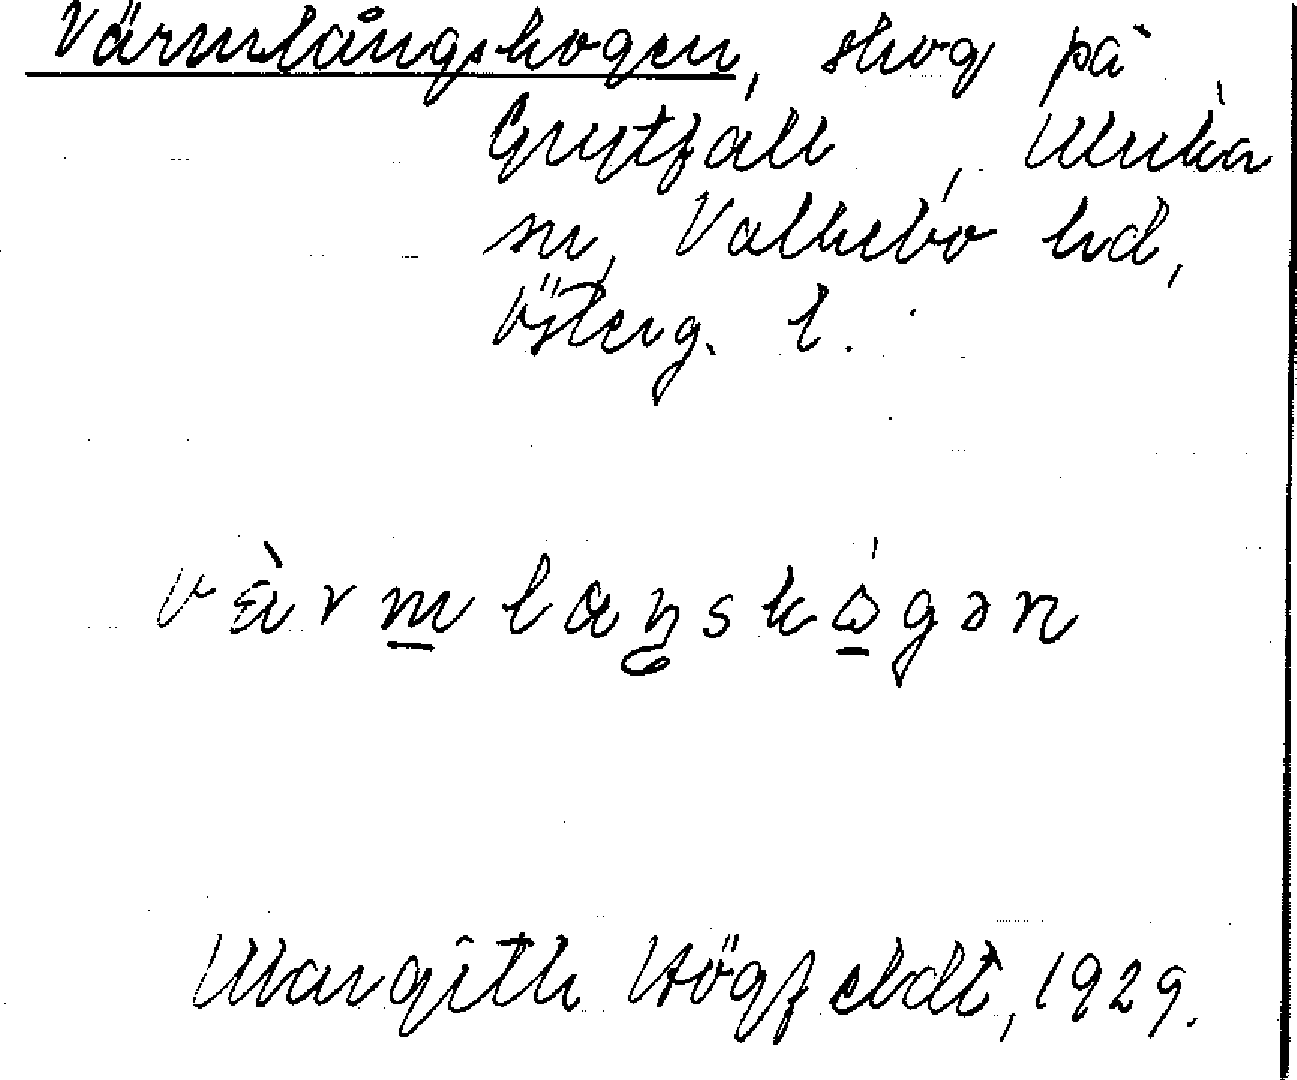 Värmlångskogen, skog på
Grytfall, Ulrika
sn, Valkebo hd,
Österg. l.
vä̀rmlaŋskógən
Margith Högfeldt, 1929.